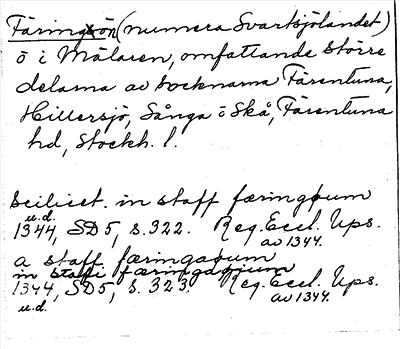 Färingsön (numera Svartsjölandet)
ö i Mälaren, omfattande större
delarna av socknarna Färentuna,
Hillersjö, Sånga o Skå, Färentuna
hd, Stockh. l.
scilicet. in staff færingøum
u.d.
1344, SD5, s. 322. Reg. Eccl. Ups.
av 1344.
a staff færingaøum
in staffi
1344, SD5, s. 323. Reg. Eccl. Ups.
u.d. av 1344.